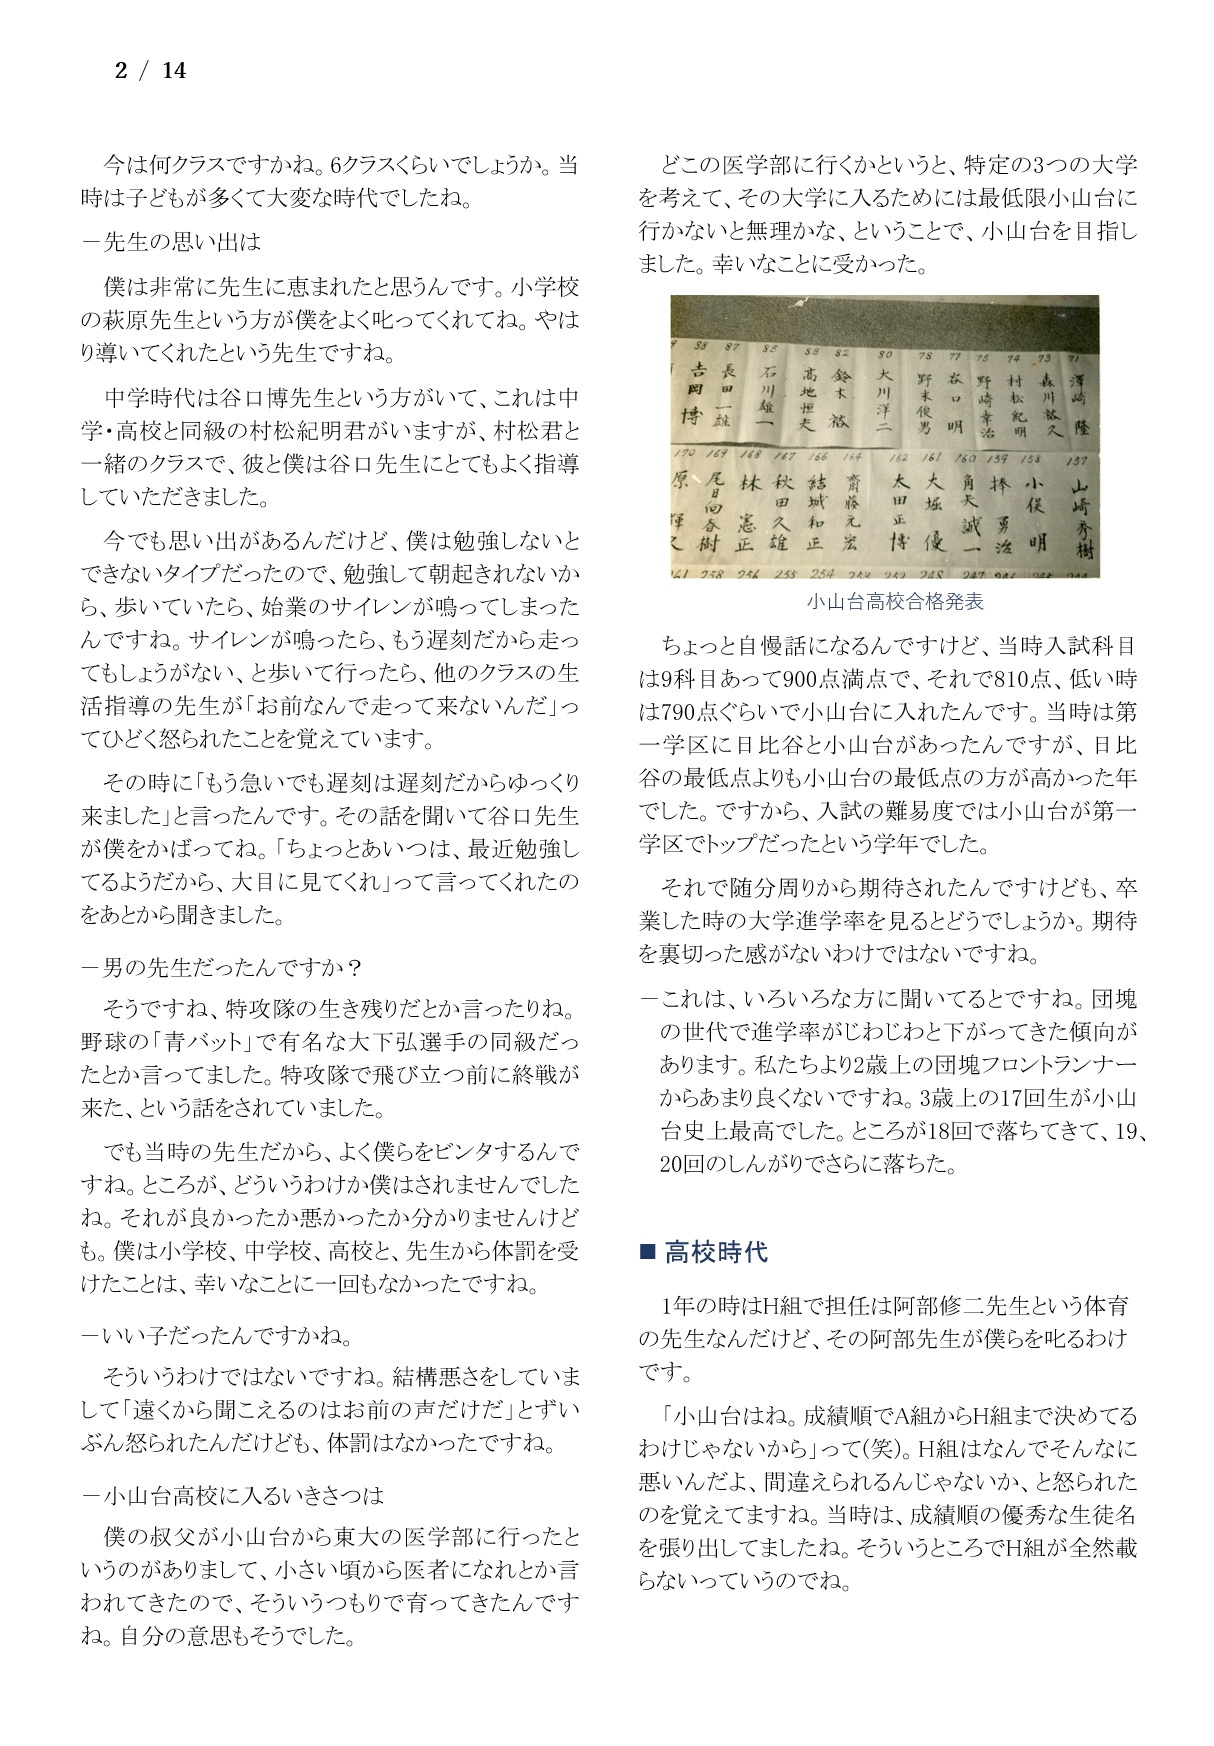 2 / 14
今は何クラスですかね。6クラスくらいでしょうか。当
時は子どもが多くて大変な時代でしたね。
－先生の思い出は
僕は非常に先生に恵まれたと思うんです。小学校
の萩原先生という方が僕をよく叱ってくれてね。やは
り導いてくれたという先生ですね。
中学時代は谷口博先生という方がいて、これは中
学・高校と同級の村松紀明君がいますが、村松君と
一緒のクラスで、彼と僕は谷口先生にとてもよく指導
していただきました。
今でも思い出があるんだけど、僕は勉強しないと
できないタイプだったので、勉強して朝起きれないか
ら、歩いていたら、始業のサイレンが鳴ってしまった
んですね。サイレンが鳴ったら、もう遅刻だから走っ
てもしょうがない、と歩いて行ったら、他のクラスの生
活指導の先生が「お前なんで走って来ないんだ」っ
てひどく怒られたことを覚えています。
その時に「もう急いでも遅刻は遅刻だからゆっくり
来ました」と言ったんです。その話を聞いて谷口先生
が僕をかばってね。「ちょっとあいつは、最近勉強し
てるようだから、大目に見てくれ」って言ってくれたの
をあとから聞きました。
－男の先生だったんですか？
そうですね、特攻隊の生き残りだとか言ったりね。
野球の「青バット」で有名な大下弘選手の同級だっ
たとか言ってました。特攻隊で飛び立つ前に終戦が
来た、という話をされていました。
でも当時の先生だから、よく僕らをビンタするんで
すね。ところが、どういうわけか僕はされませんでした
ね。それが良かったか悪かったか分かりませんけど
も。僕は小学校、中学校、高校と、先生から体罰を受
けたことは、幸いなことに一回もなかったですね。
－いい子だったんですかね。
そういうわけではないですね。結構悪さをしていま
して「遠くから聞こえるのはお前の声だけだ」とずい
ぶん怒られたんだけども、体罰はなかったですね。
－小山台高校に入るいきさつは
僕の叔父が小山台から東大の医学部に行ったと
いうのがありまして、小さい頃から医者になれとか言
われてきたので、そういうつもりで育ってきたんです
ね。自分の意思もそうでした。
どこの医学部に行くかというと、特定の3つの大学
を考えて、その大学に入るためには最低限小山台に
行かないと無理かな、ということで、小山台を目指し
ました。幸いなことに受かった。
88 87 85 83 82 80 78 77 75 74 73 71
吉岡博 長田一雄 石川雄一 高地恒夫 鈴木裕 大川洋二 野末俊男 谷口明 野崎幸治 村松紀明 森川敏久 澤崎隆
170 169 168 167 166 164 162 161 160 159 158 157
原 尾日向春樹 林憲正 秋田久雄 結城和正 齋藤元宏 太田正博 大堀優 角矢誠一 捧勇治 小俣明 山崎秀樹
258 256 255 254 248 247
小山台高校合格発表
ちょっと自慢話になるんですけど、当時入試科目
は9科目あって900点満点で、それで810点、低い時
は790点ぐらいで小山台に入れたんです。当時は第
一学区に日比谷と小山台があったんですが、日比
谷の最低点よりも小山台の最低点の方が高かった年
でした。ですから、入試の難易度では小山台が第一
学区でトップだったという学年でした。
それで随分周りから期待されたんですけども、卒
業した時の大学進学率を見るとどうでしょうか。期待
を裏切った感がないわけではないですね。
－これは、いろいろな方に聞いてるとですね。団塊
の世代で進学率がじわじわと下がってきた傾向が
あります。私たちより2歳上の団塊フロントランナー
からあまり良くないですね。3歳上の17回生が小山
台史上最高でした。ところが18回で落ちてきて、19、
20回のしんがりでさらに落ちた。
■ 高校時代
1年の時はH組で担任は阿部修二先生という体育
の先生なんだけど、その阿部先生が僕らを叱るわけ
です。
「小山台はね。成績順でA組からH組まで決めてる
わけじゃないから」って(笑)。H組はなんでそんなに
悪いんだよ、間違えられるんじゃないか、と怒られた
のを覚えてますね。当時は、成績順の優秀な生徒名
を張り出してましたね。そういうところでH組が全然載
らないっていうのでね。